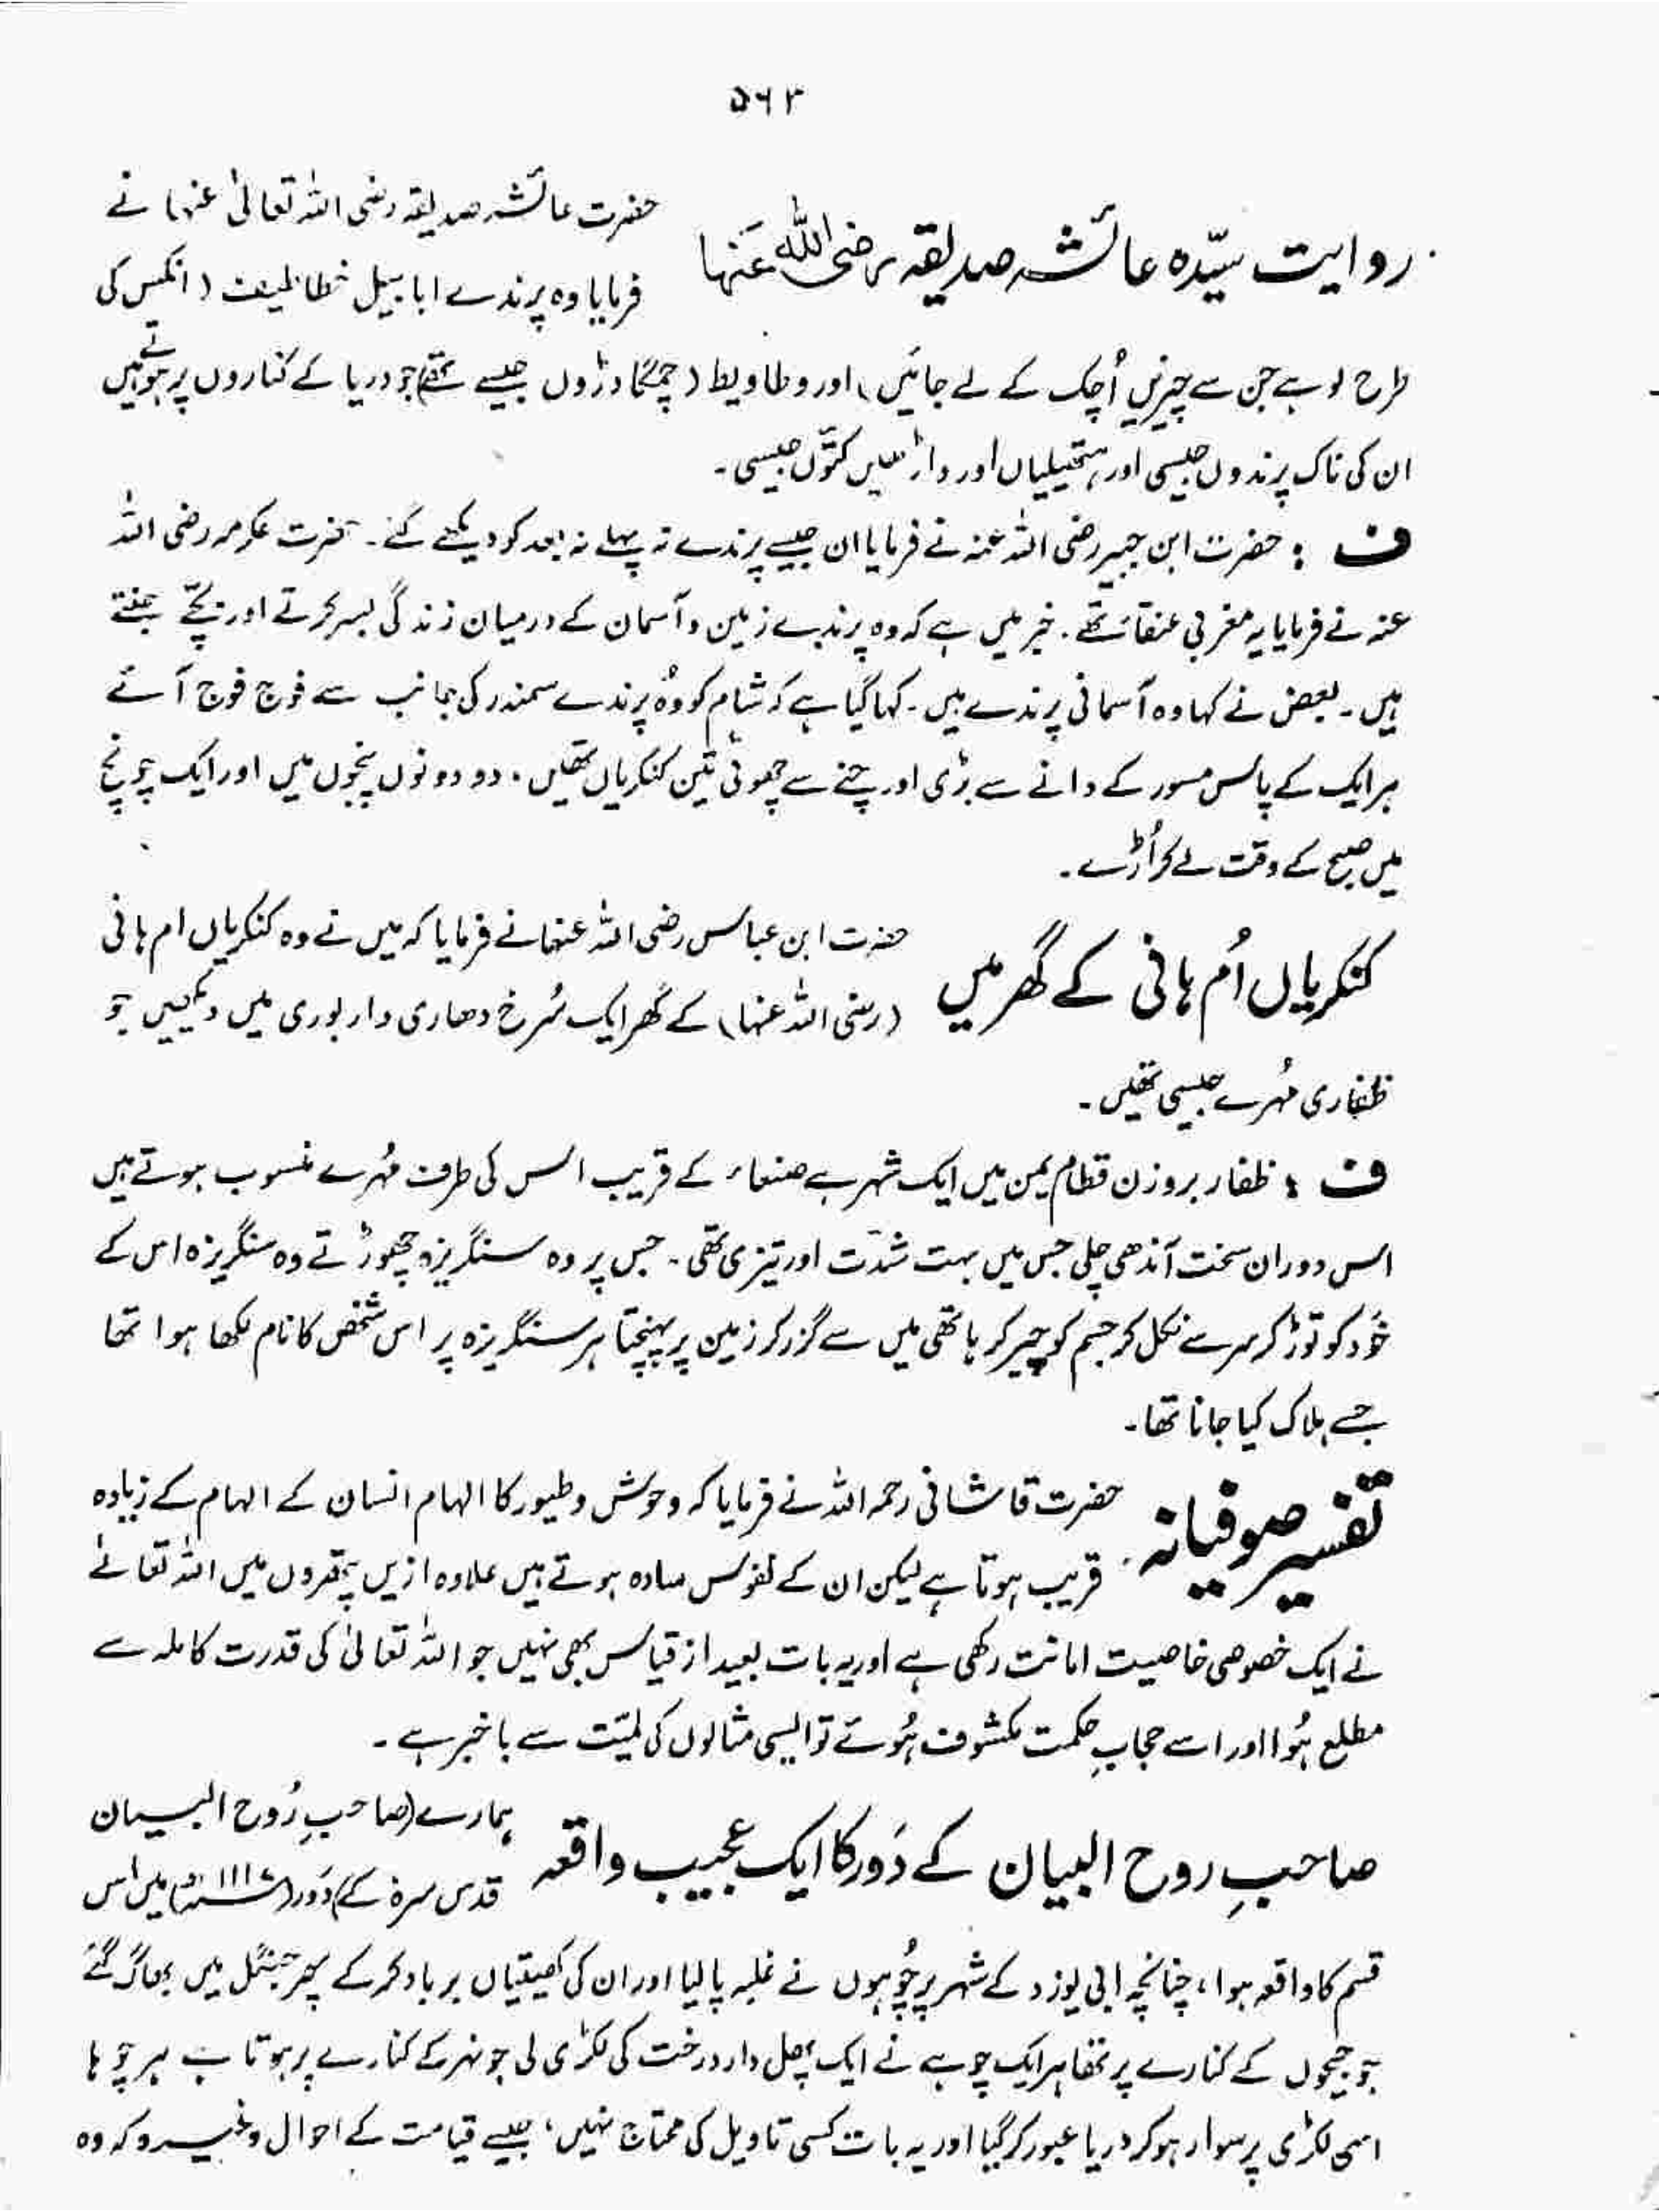 ۵۶۲
روایت سیّدہ عائشہ صدیقہ رضی اللہ عنہا
حضرت عائشہ صدیقہ رضی اللہ تعالیٰ عنہا نے
فرمایا وہ پرندے ابابیل خطاطیف ( انکس کی
طرح لوہے جن سے چیزیں اُچک کے لے جائیں ) اور وطاویط ( چمگادڑوں جیسے تھے ) جو دریا کے کناروں پر ہوتے ہیں
ان کی ناک پرندوں جیسی اور ہتھیلیاں اور داڑھیں کتّوں جیسی ۔
ف : حضرت ابن جبیر رضی اللہ عنہ نے فرمایا ان جیسے پرندے نہ پہلے نہ بعد کو دیکھے گئے ۔ حضرت عکرمہ رضی اللہ
عنہ نے فرمایا یہ مغربی عنقاء تھے ۔ خبر میں ہے کہ وہ پرندے زمین و آسمان کے درمیان زندگی بسر کرتے اور بچّے جنتے
ہیں ۔ بعض نے کہا وہ آسمانی پرندے ہیں ۔ کہا گیا ہے کہ شام کو وہ پرندے سمندر کی جانب سے فوج فوج آئے
ہر ایک کے پاس مسور کے دانے سے بڑی اور چنے سے چھوٹی تین کنکریاں تھیں ۔ دو دونوں پنجوں میں اور ایک چونچ
میں صبح کے وقت لے کر اُڑے ۔
کنکریاں اُم ہانی کے گھر میں
حضرت ابن عباس رضی اللہ عنہما نے فرمایا کہ میں نے وہ کنکریاں ام ہانی
( رضی اللہ عنہا ) کے گھر ایک سُرخ دھاری دار بوری میں دیکھیں جو
ظفاری مُہرے جیسی تھیں ۔
ف : ظفار بروزن قطام یمن میں ایک شہر ہے صنعاء کے قریب اس کی طرف مُہرے منسوب ہوتے ہیں
اس دوران سخت آندھی چلی جس میں بہت شدّت اور تیزی تھی ۔ جس پر وہ سنگریزہ چھوڑتے وہ سنگریزہ اس کے
خَود کو توڑ کر سر سے نکل کر جسم کو چیر کر ہاتھی میں سے گزر کر زمین پر پہنچتا ہر سنگریزہ پر اس شخص کا نام لکھا ہوا تھا
جسے ہلاک کیا جانا تھا ۔
تفسیر صوفیانہ
حضرت قاشانی رحمہ اللہ نے فرمایا کہ وحوش و طیور کا الہام انسان کے الہام کے زیادہ
قریب ہوتا ہے لیکن ان کے نفوس سادہ ہوتے ہیں علاوہ ازیں پتھروں میں اللہ تعالےٰ
نے ایک خصوصی خاصیت امانت رکھی ہے اور یہ بات بعید از قیاس بھی نہیں جو اللہ تعالیٰ کی قدرت کاملہ سے
مطلع ہُوا اور اسے حجابِ حکمت مکشوف ہُوئے تو ایسی مثالوں کی لمیّت سے باخبر ہے ۔
صاحبِ روح البیان کے دَور کا ایک عجیب واقعہ
ہمارے ( صاحبِ رُوح البیان
قدس سرہ کے ) دَور ( ) میں اس
قسم کا واقعہ ہوا ، چنانچہ ابی یوزد کے شہر پر چُوہوں نے غلبہ پا لیا اور ان کی کھیتیاں برباد کر کے پھر جنگل میں بھاگ گئے
جو جیحوں کے کنارے پر تھا ہر ایک چوہے نے ایک پھل دار درخت کی لکڑی لی جو نہر کے کنارے پر ہوتا ہے ہر چوہا
اسی لکڑی پر سوار ہو کر دریا عبور کر گیا اور یہ بات کسی تاویل کی محتاج نہیں ، جیسے قیامت کے احوال وغیرہ کہ وہ